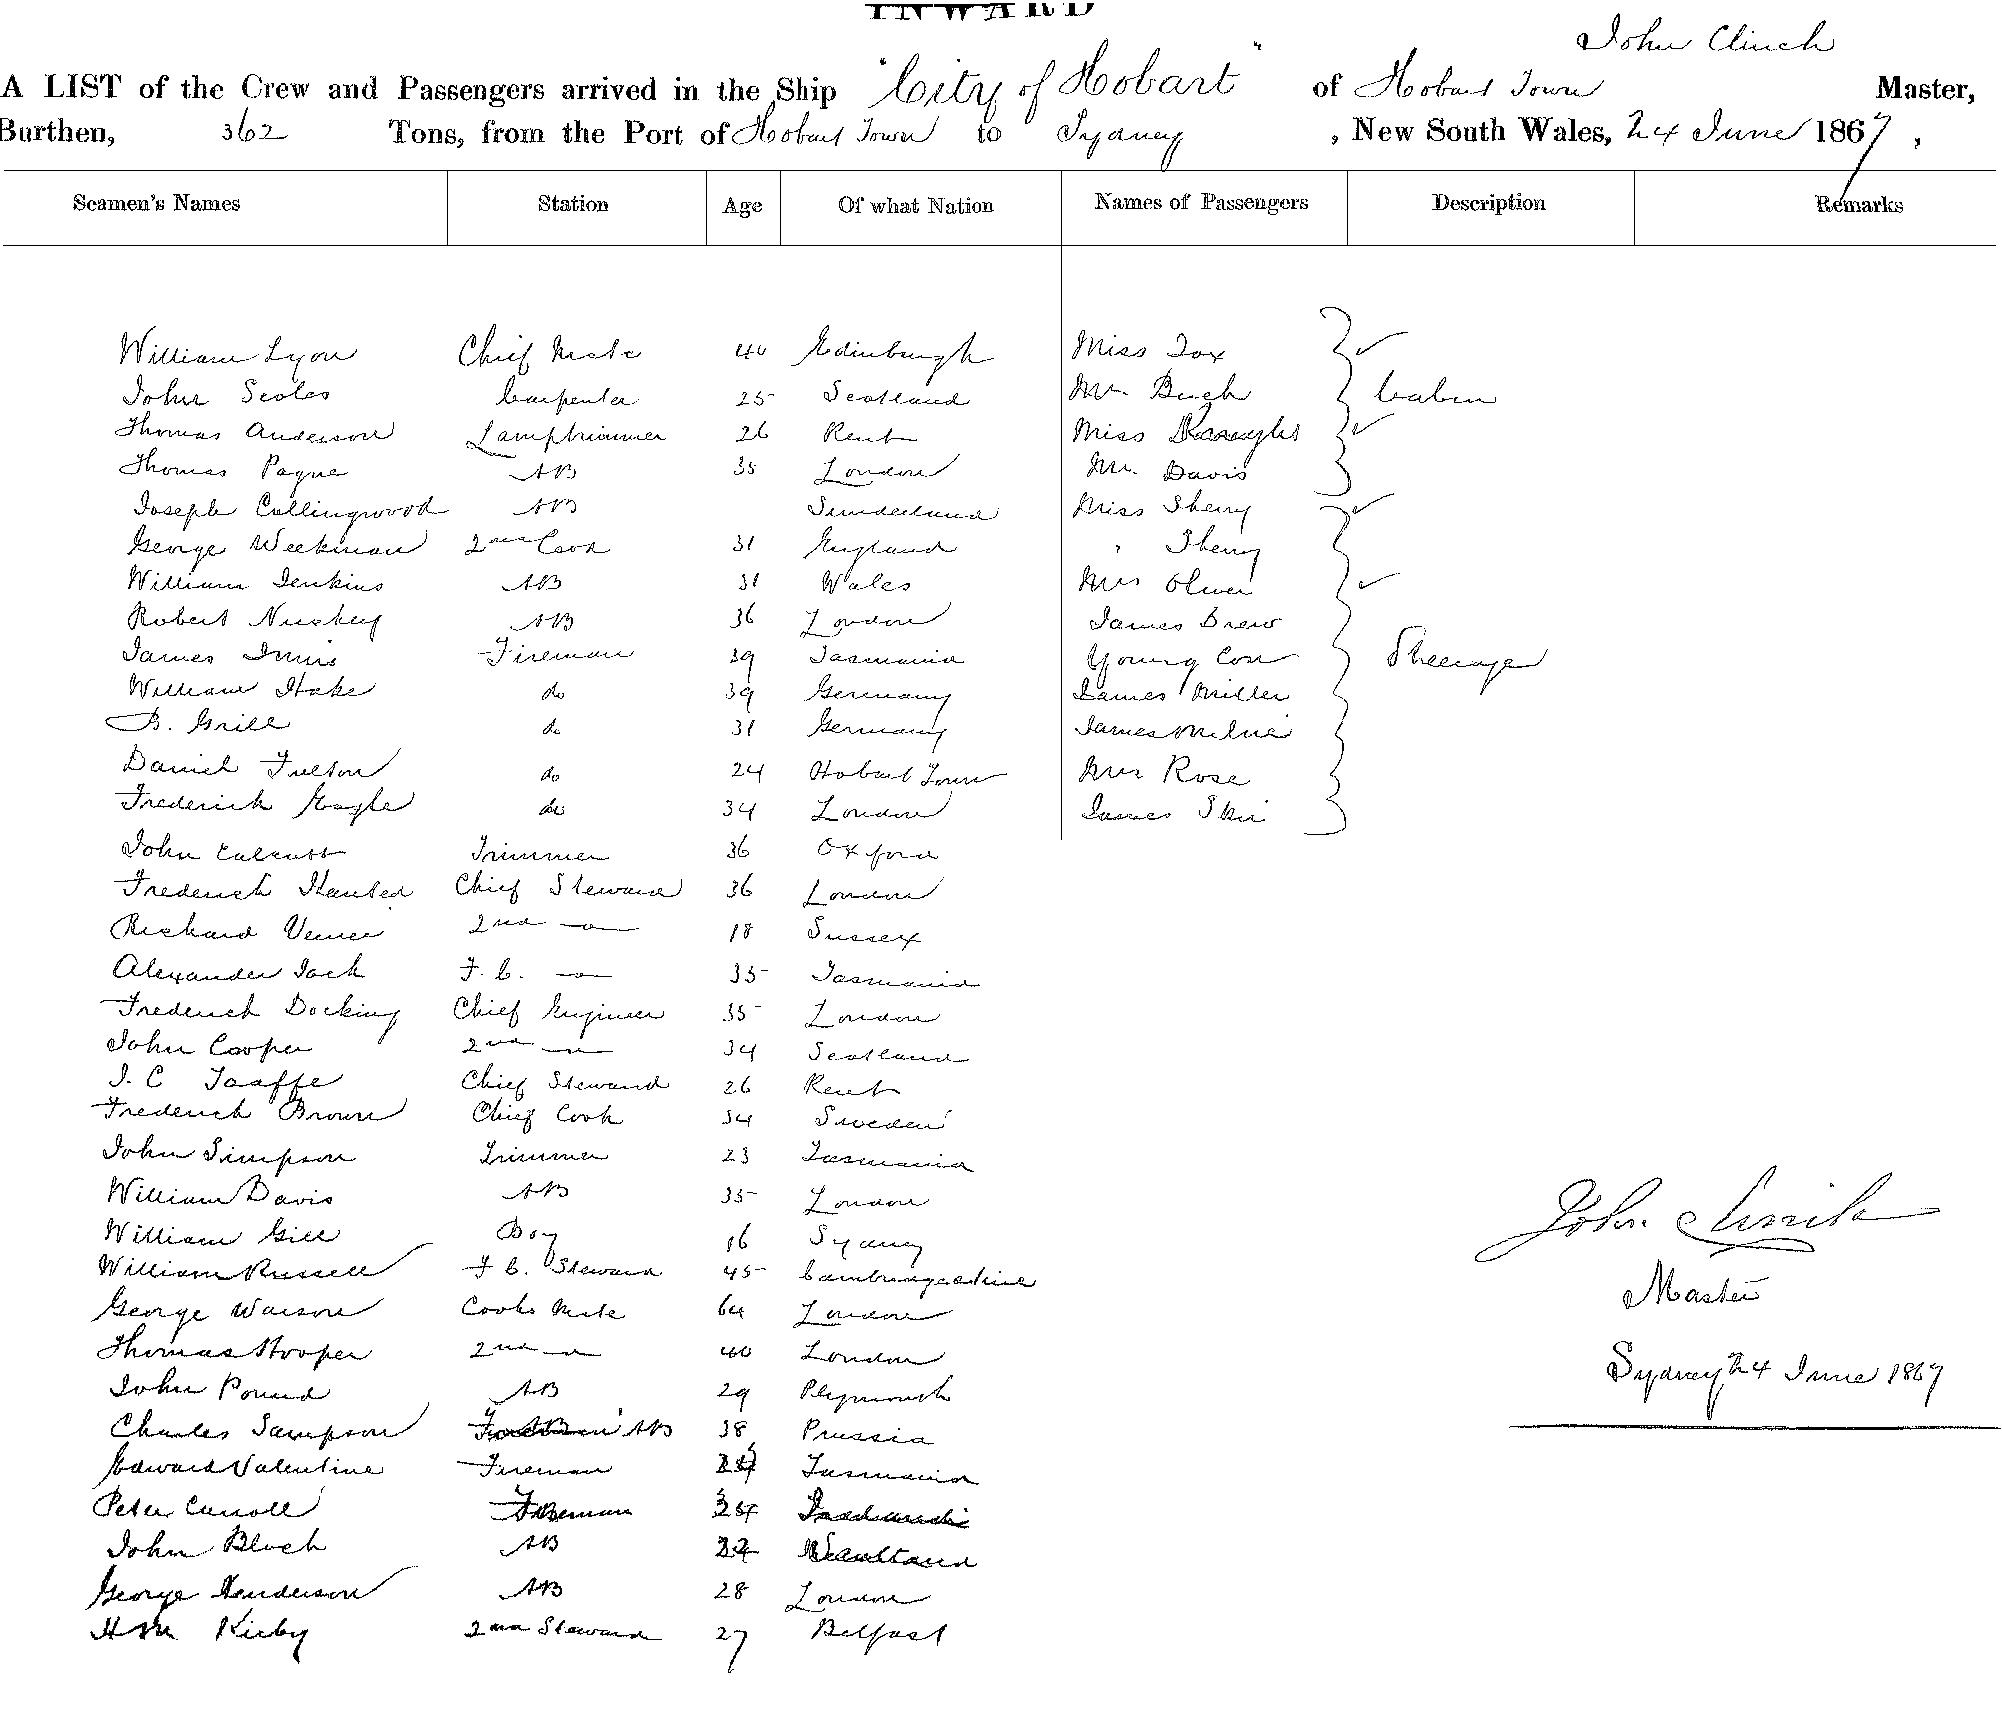 INWARD
John Clinch
A LIST of the Crew and Passengers arrived in the Ship "City of Hobart" of Hobart Town Master,
Burthen, 362 Tons, from the Port of Hobart Town to Sydney, New South Wales, 24 June 1867,
Seamen's Names Station Age Of what Nation Names of Passengers Description Remarks
William Lyon Chief Mate 40 Edinburgh Miss Fox
John Scoles Carpenter 25 Scotland Mr. Buch Cabin
Thomas Anderson Lamptrimmer 26 Kent Miss
Thomas Payne AB 35 London Mr. Davis
Joseph Collingwood AB Sunderland Miss Sherry
George Weekman 2nd Cook 31 England " Sherry
William Jenkins AB 31 Wales Mrs Oliver
Robert AB 36 London James Drew
James Innis Fireman 39 Tasmania Young Con Steerage
William Hake do 39 Germany James Miller
B. Grill do 31 Germany James Milne
Daniel Fulton do 24 Hobart Town Mrs Rose
Frederick Eagle do 34 London James
John Calcutt Trimmer 36 Oxford
Frederick Chief Steward 36 London
Richard 2nd do 18 Sussex
Alexander Jack F. C. do 35 Tasmania
Frederick Docking Chief Engineer 35 London
John Cooper 2nd do 34 Scotland
J. C Taaffe Chief Steward 26 Kent
Frederick Brown Chief Cook 34 Sweden
John Simpson Trimmer 23 Tasmania
William Davis AB 35 London
William Gill Boy 16 Sydney
William Russell F C. Steward 45 Cambridgeshire
George Watson Cooks Mate 64 London
Thomas Hooper 2nd do 40 London
John Pound AB 29 Plymouth
Charles Sampson AB 38 Prussia
Edward Valentine Fireman Tasmania
Peter Carroll
John Bloch AB
George Henderson AB 28 London
Kirby 2nd Steward 27 Belfast
John Clinch
Master
Sydney 24 June 1867